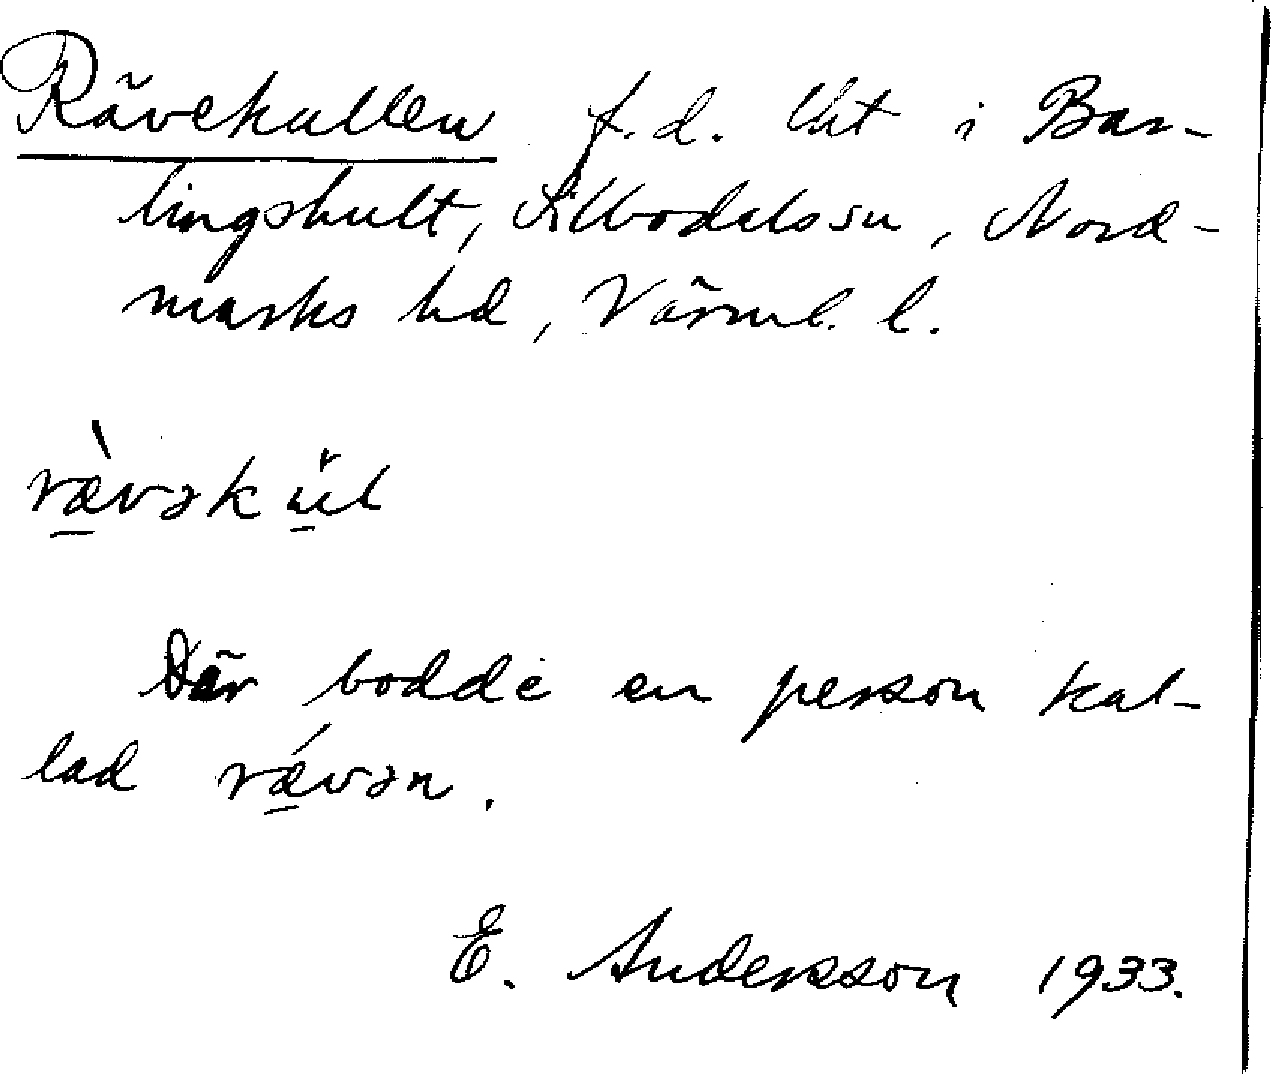 Rävekullen f.d. lht i Bar-
lingshult, Sillbodals sn, Nord-
marks hd, Värml. l.
ræ̀vəkùl
Där bodde en person kal-
lad rǽvən.
E. Andersson 1933.